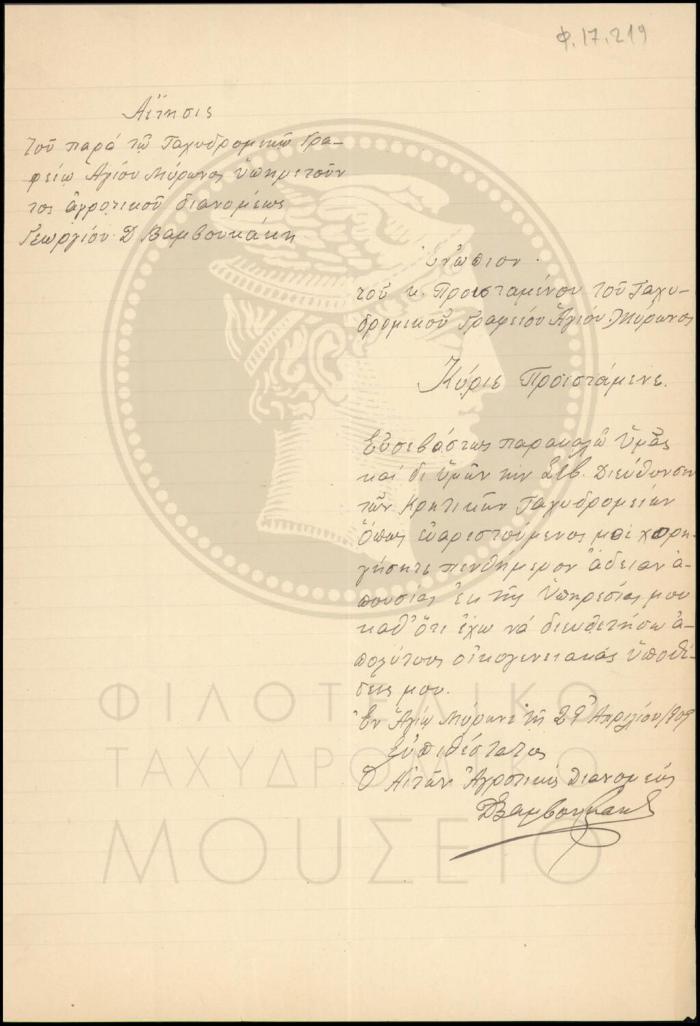 Φ.17.219
Αἴτησις
τοῦ παρὰ τῷ Ταχυδρομικῷ Γρα-
φείῳ Ἁγίου Μύρωνος ὑπηρετοῦν
τος ἀγροτικοῦ διανομέως
Γεωργίου Δ Βαμβουκάκη
Ἐνώπιον
τοῦ κ. Προϊσταμένου τοῦ Ταχυ-
δρομικοῦ Γραφείου Ἁγίου Μύρωνος
Κύριε Προϊστάμενε.
Εὐσεβάστως παρακαλῶ Ὑμᾶς
καί δι Ὑμῶν τήν Σεβ. Διεύθυνσιν
τῶν Κρητικῶν Ταχυδρομείων
ὅπως εὐαρεστούμενος μοί χορη-
γήσητε πενθήμερον ἄδειαν ἀ-
πουσίας ἐκ τῆς ὑπηρεσίας μου
καθ' ὅτι ἔχω νά διευθετήσω ἀ-
πολύτους οἰκογενειακάς ὑποθέ-
σεις μου.
Ἐν Ἁγίῳ Μύρωνι τῇ 29 Ἀπριλίου/909
Εὐπειθέστατος
Ὁ Αἰτῶν Ἀγροτικός Διανομεύς
ΓΔΒαμβουκάκης
ΦΙΛΟΤΕΛΙΚΟ
ΤΑΧΥΔΡΟΜΙΚΟ
ΜΟΥΣΕΙΟ